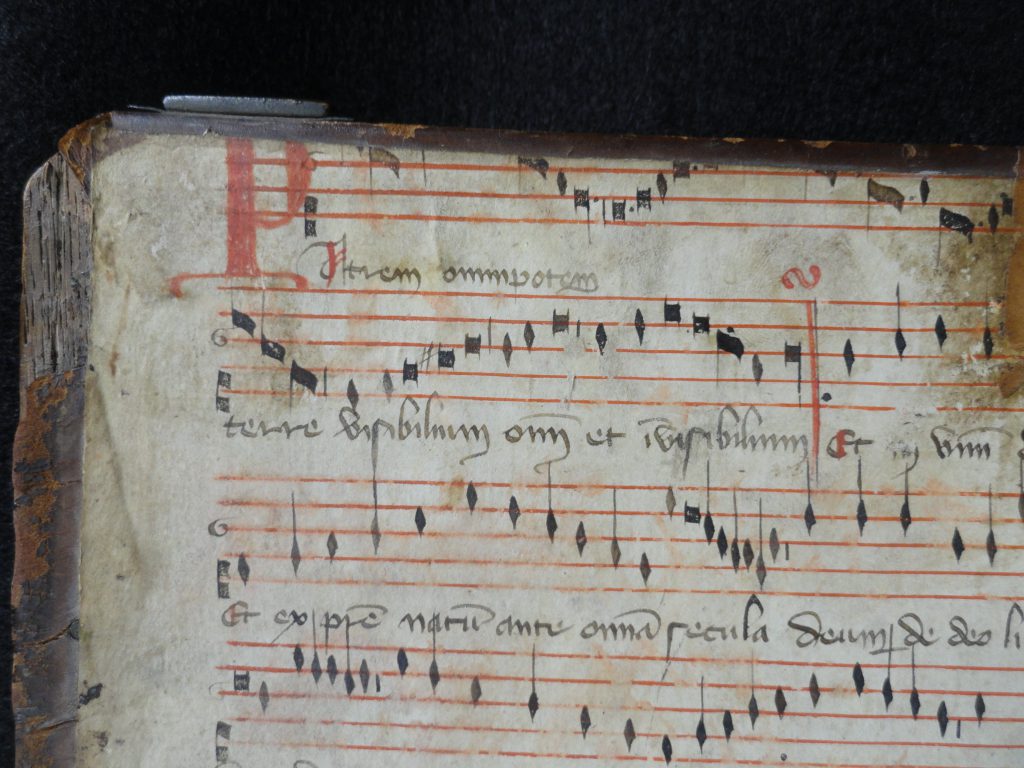 Patrem omnipotem
terre visibilium oīm et īvisibilium Et in vnū
Et ex pr̄e natū ante omnā secula deum de deo li